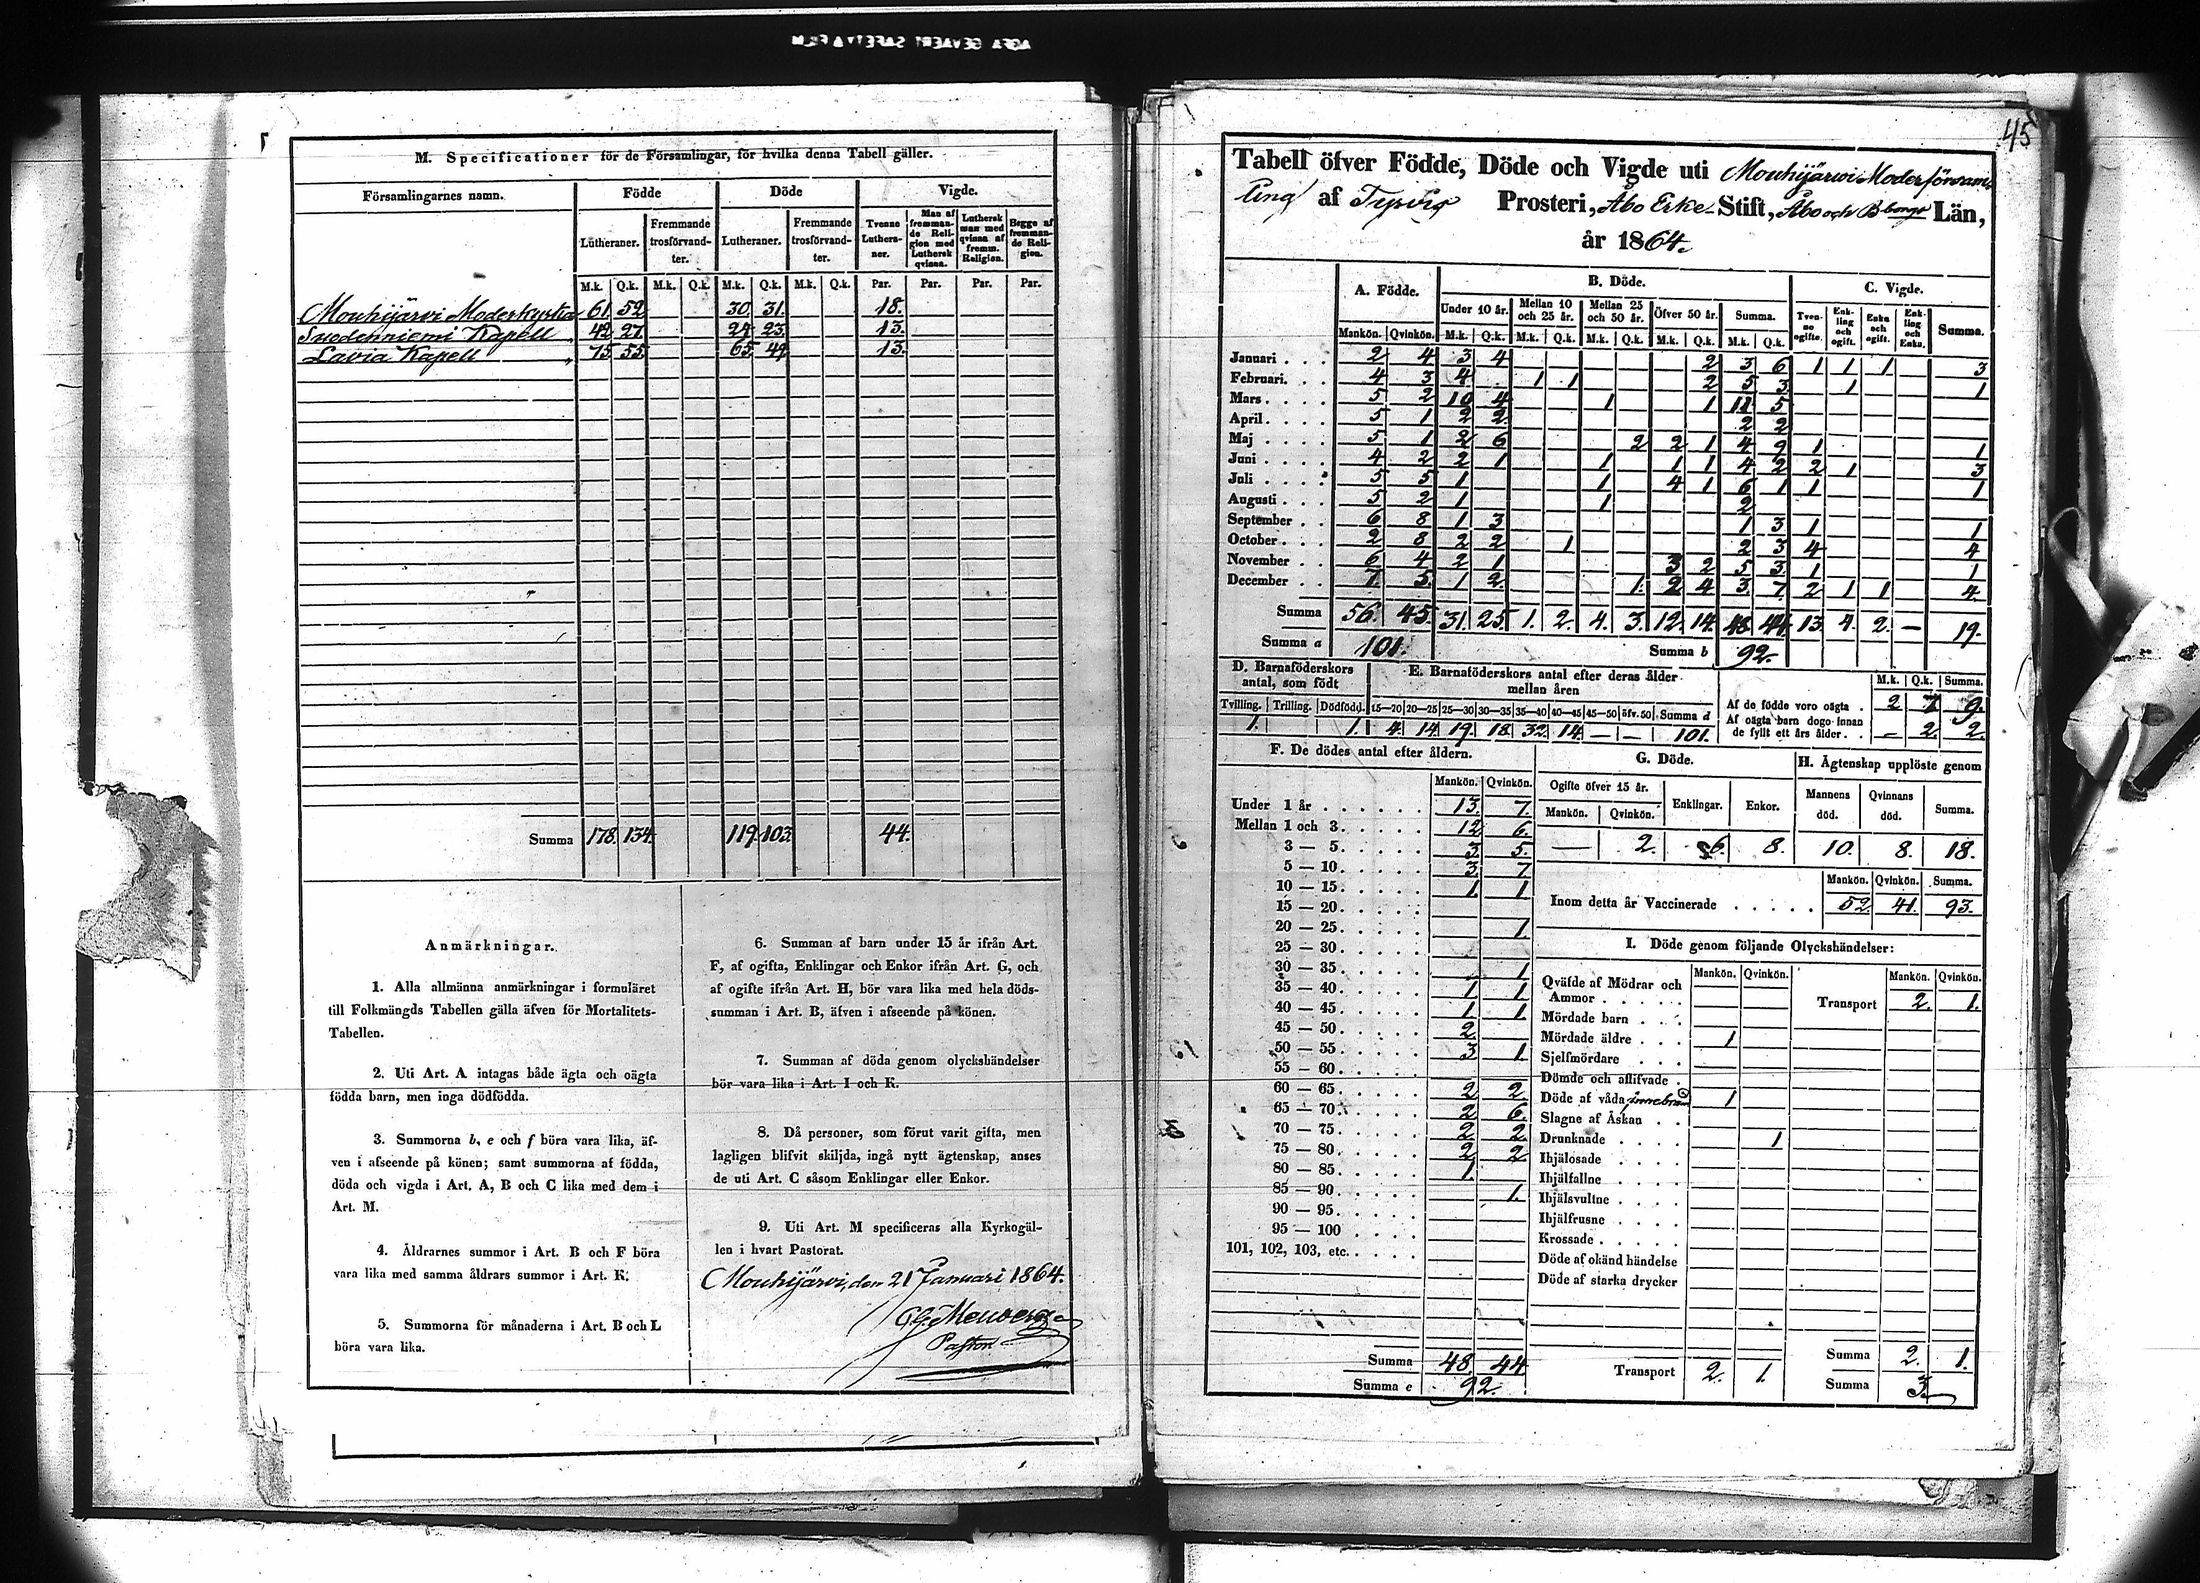 AGFA GEVAERT SAFETY FILM
M. Specificationer för de Församlingar, för hvilka denna Tabell gäller.
Församlingarnes namn. Födde Döde Vigde.
Lutheraner. Fremmande trosförvandter. Lutheraner. Fremmande trosförvandter. Tvenne Lutheraner. Man af fremmande Religion med Luthersk qvinna. Luthersk man med qvinna af fremm. Religion. Begge af fremmande Religion.
M.k. Q.k. M.k. Q.k. M.k. Q.k. M.k. Q.k. Par. Par. Par. Par.
Mouhijärvi Moderkyrka 61. 52. 30. 31. 18.
Suodenniemi Kapell 42. 27. 24. 23. 13.
Lavia Kapell 75. 55. 65. 49. 13.
Summa 178. 134. 119. 103. 44.
Anmärkningar.
1. Alla allmänna anmärkningar i formuläret
till Folkmängds Tabellen gälla äfven för Mortalitets-
Tabellen.
2. Uti Art. A intagas både ägta och oägta
födda barn, men inga dödfödda.
3. Summorna b, e och f böra vara lika, äf-
ven i afseende på könen; samt summorna af födda,
döda och vigda i Art. A, B och C lika med dem i
Art. M.
4. Åldrarnes summor i Art. B och F böra
vara lika med samma åldrars summor i Art. K.
5. Summorna för månaderna i Art. B och L
böra vara lika.
6. Summan af barn under 15 år ifrån Art.
F, af ogifta, Enklingar och Enkor ifrån Art. G, och
af ogifte ifrån Art. H, bör vara lika med hela döds-
summan i Art. B, äfven i afseende på könen.
7. Summan af döda genom olyckshändelser
bör vara lika i Art. I och K.
8. Då personer, som förut varit gifta, men
lagligen blifvit skiljda, ingå nytt ägtenskap, anses
de uti Art. C såsom Enklingar eller Enkor.
9. Uti Art. M specificeras alla Kyrkogäl-
len i hvart Pastorat.
Mouhijärvi, den 21 Januari 1864.
Pastor
45
Tabell öfver Födde, Döde och Vigde uti Mouhijärvi Moderförsam-
ling af Tyrvis Prosteri, Åbo Erke- Stift, Åbo och Bborgs Län,
år 1864.
A. Födde. B. Döde. C. Vigde.
Under 10 år. Mellan 10 och 25 år. Mellan 25 och 50 år. Öfver 50 år. Summa. Tvenne ogifte. Enkling och ogift. Enka och ogift. Enkling och Enka. Summa.
Mankön. Qvinkön. M.k. Q.k. M.k. Q.k. M.k. Q.k. M.k. Q.k. M.k. Q.k.
Januari 2 4 3 4 2 3 6 1 1 1 3
Februari. 4 3 4 1 1 2 5 3 1 1
Mars 5 2 10 4 1 1 11 5
April 5 1 2 2 2 2
Maj 5 1 2 6 2 2 1 4 9 1 1
Juni 4 2 2 1 1 1 1 4 2 2 1 3
Juli 5 5 1 1 4 1 6 1 1 1
Augusti 5 2 1 1 2
September 6 8 1 3 1 3 1 1
October 2 8 2 2 1 2 3 4 4
November 6 4 2 1 3 2 5 3 1 1
December 7 5 1 2 1 2 4 3 7 2 1 1 4
Summa 56. 45. 31. 25. 1. 2. 4. 3. 12. 14. 48 44 13 4. 2. — 19.
Summa a 101. Summa b 92.
D. Barnaföderskors antal, som född
E. Barnaföderskors antal efter deras ålder mellan åren
M.k. Q.k. Summa.
Tvilling. Trilling. Dödfödd. 15—20 20—25 25—30 30—35 35—40 40—45 45—50 öfv. 50 Summa d
1. 1. 4. 14. 19. 18. 32. 14. — — 101.
Af de födde voro oägta 2 7 9.
Af oägta barn dogo innan
de fyllt ett års ålder — 2. 2.
F. De dödes antal efter åldern.
Mankön. Qvinkön.
Under 1 år 13. 7.
Mellan 1 och 3 12 6.
3 — 5 3 5.
5 — 10 3 7
10 — 15 1. 1
15 — 20
20 — 25 1.
25 — 30
30 — 35 1
35 — 40 1 1
40 — 45 1 1.
45 — 50 2.
50 — 55 3 1
55 — 60
60 — 65 2 2
65 — 70 2 6.
70 — 75 2 2
75 — 80 2 2
80 — 85 1.
85 — 90 1.
90 — 95
95 — 100
101, 102, 103, etc.
Summa 48. 44
Summa e 92.
G. Döde.
Ogifte öfver 15 år. Enklingar. Enkor.
Mankön. Qvinkön.
— 2. 6. 8.
H. Ägtenskap upplöste genom
Mannens död. Qvinnans död. Summa.
10. 8. 18.
Mankön. Qvinkön. Summa.
Inom detta år Vaccinerade 52. 41. 93.
I. Döde genom följande Olyckshändelser:
Mankön. Qvinkön. Mankön. Qvinkön.
Qväfde af Mödrar och
Ammor
Transport 2. 1.
Mördade barn
Mördade äldre 1
Sjelfmördare
Dömde och aflifvade
Döde af våda innebränd 1
Slagne af Åskan
Drunknade 1
Ihjälosade
Ihjälfallne
Ihjälsvultne
Ihjälfrusne
Krossade
Döde af okänd händelse
Döde af starka drycker
Transport 2. 1.
Summa 2. 1.
Summa 3.